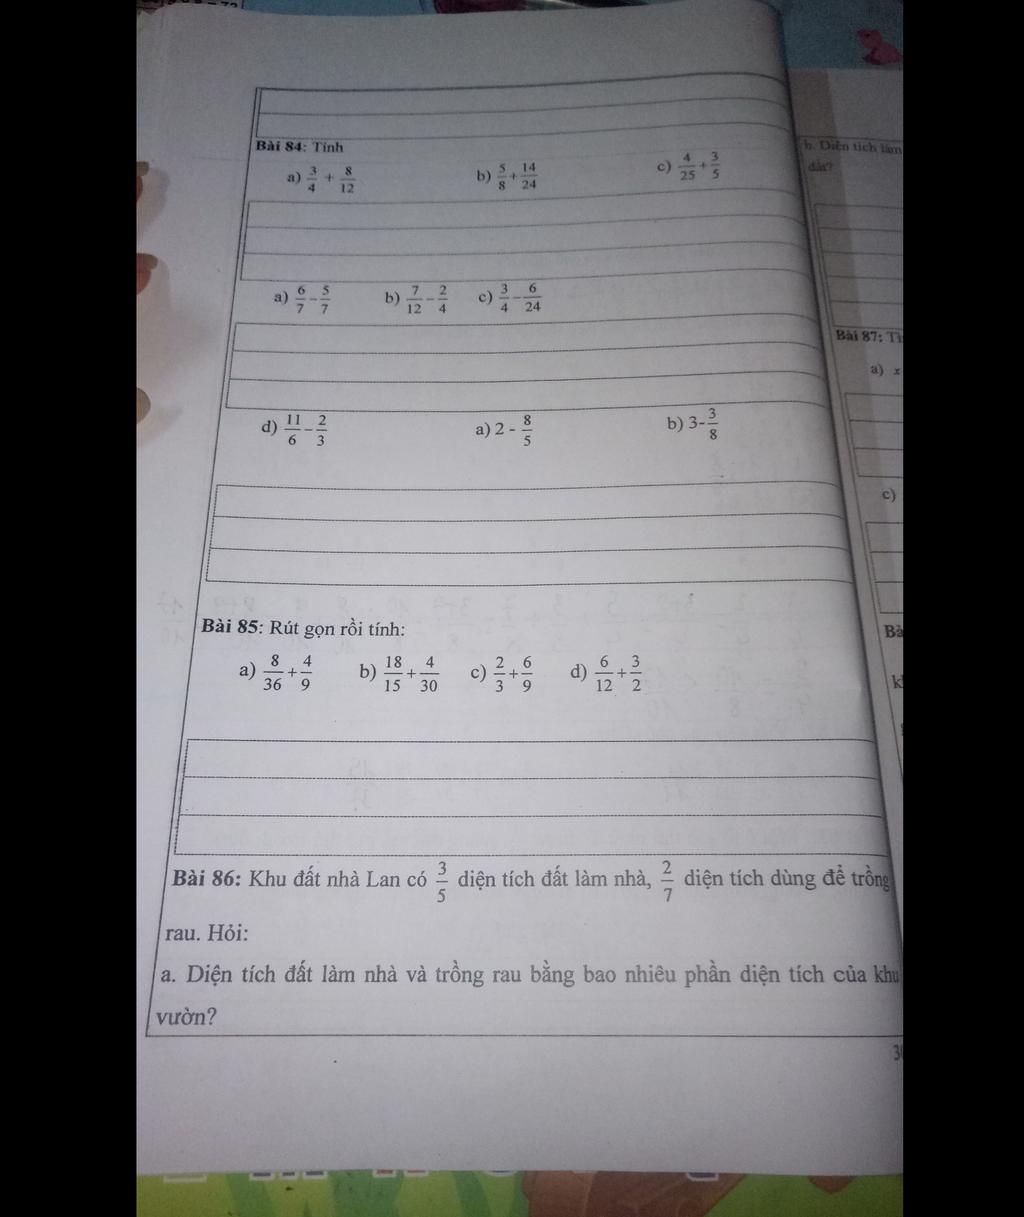 Bài 84: Tính
a) 3/4 + 8/12 b) 5/8 + 14/24 c) 4/25 + 3/5
a) 6/7 - 5/7 b) 7/12 - 2/4 c) 3/4 - 6/24
d) 11/6 - 2/3 a) 2 - 8/5 b) 3- 3/8
Bài 85: Rút gọn rồi tính:
a) 8/36 + 4/9 b) 18/15 + 4/30 c) 2/3 + 6/9 d) 6/12 + 3/2
Bài 86: Khu đất nhà Lan có 3/5 diện tích đất làm nhà, 2/7 diện tích dùng để trồng
rau. Hỏi:
a. Diện tích đất làm nhà và trồng rau bằng bao nhiêu phần diện tích của khu
vườn?
b. Diện tích làm
đất?
Bài 87:
a) x
c)